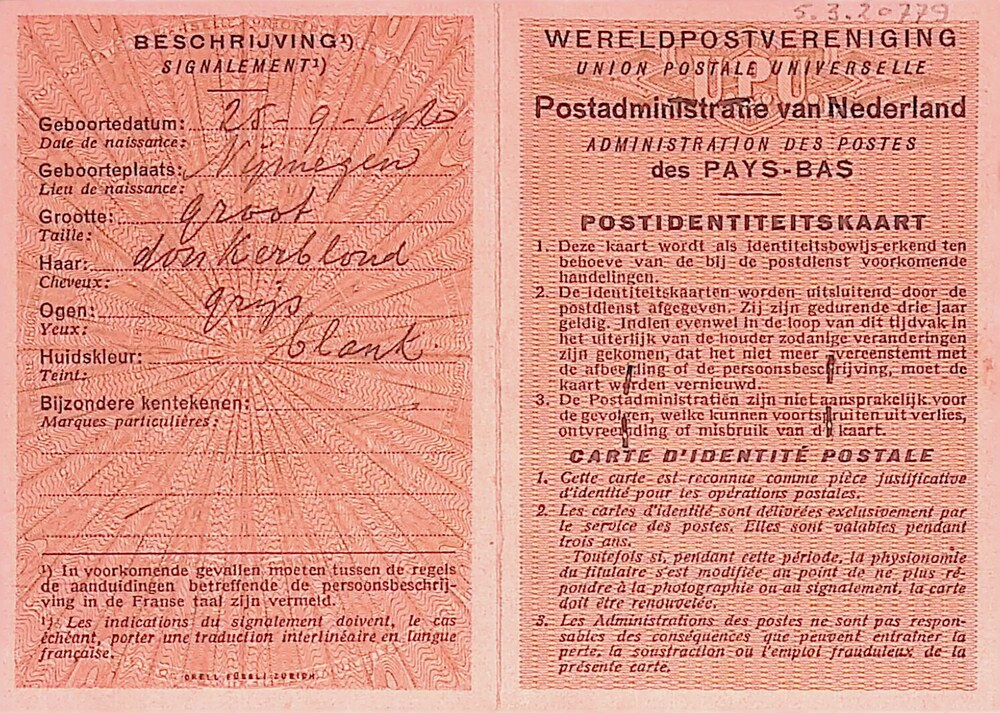 BESCHRIJVING¹)
SIGNALEMENT¹)
Geboortedatum: 25-9-1920
Date de naissance:
Geboorteplaats: Nijmegen
Lieu de naissance:
Grootte: groot
Taille:
Haar: donkerblond
Cheveux:
Ogen: grijs
Yeux:
Huidskleur: blank.
Teint:
Bijzondere kentekenen:
Marques particulières:
¹) In voorkomende gevallen moeten tussen de regels
de aanduidingen betreffende de persoonsbeschrij-
ving in de Franse taal zijn vermeld.
¹) Les indications du signalement doivent, le cas
échéant, porter une traduction interlinéaire en langue
française.
ORELL FÜSSLI ZURICH
5.3.20779
WERELDPOSTVERENIGING
UNION POSTALE UNIVERSELLE
UPU
Postadministratie van Nederland
ADMINISTRATION DES POSTES
des PAYS-BAS
POSTIDENTITEITSKAART
1. Deze kaart wordt als identiteitsbewijs erkend ten
behoeve van de bij de postdienst voorkomende
handelingen.
2. De identiteitskaarten worden uitsluitend door de
postdienst afgegeven. Zij zijn gedurende drie jaar
geldig. Indien evenwel in de loop van dit tijdvak in
het uiterlijk van de houder zodanige veranderingen
zijn gekomen, dat het niet meer overeenstemt met
de afbeelding of de persoonsbeschrijving, moet de
kaart worden vernieuwd.
3. De Postadministratiën zijn niet aansprakelijk voor
de gevolgen, welke kunnen voortspruiten uit verlies,
ontvreemding of misbruik van de kaart.
CARTE D'IDENTITÉ POSTALE
1. Cette carte est reconnue comme pièce justificative
d'identité pour les opérations postales.
2. Les cartes d'identité sont délivrées exclusivement par
le service des postes. Elles sont valables pendant
trois ans.
Toutefois si, pendant cette période, la physionomie
du titulaire s'est modifiée au point de ne plus ré-
pondre à la photographie ou au signalement, la carte
doit être renouvelée.
3. Les Administrations des postes ne sont pas respon-
sables des conséquences que peuvent entraîner la
perte, la soustraction ou l'emploi frauduleux de la
présente carte.